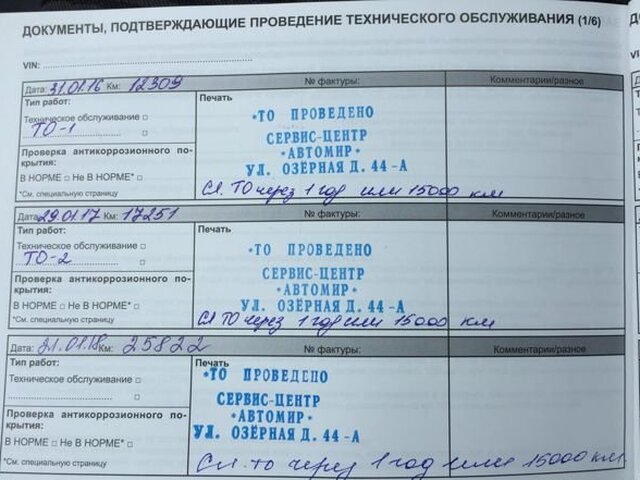 ДОКУМЕНТЫ, ПОДТВЕРЖДАЮЩИЕ ПРОВЕДЕНИЕ ТЕХНИЧЕСКОГО ОБСЛУЖИВАНИЯ (1/6)
VIN:
Дата: 31.01.16 Км: 12309 № фактуры: Комментарии/разное
Тип работ: Печать
Техническое обслуживание □ *ТО ПРОВЕДЕНО
ТО-1 □ СЕРВИС-ЦЕНТР
Проверка антикоррозионного по- *АВТОМИР*
крытия: УЛ. ОЗЁРНАЯ Д. 44-А
В НОРМЕ □ Не В НОРМЕ* □
*См. специальную страницу Сл. ТО через 1 год или 15000 км
Дата: 29.01.17 Км: 17251 № фактуры: Комментарии/разное
Тип работ: Печать
Техническое обслуживание □ *ТО ПРОВЕДЕНО
ТО-2 □ СЕРВИС-ЦЕНТР
Проверка антикоррозионного по- *АВТОМИР*
крытия: УЛ. ОЗЁРНАЯ Д. 44-А
В НОРМЕ □ Не В НОРМЕ* □
*См. специальную страницу Сл ТО через 1 год или 15000 км
Дата: 21.01.18 Км: 25822 № фактуры: Комментарии/разное
Тип работ: Печать
Техническое обслуживание □ *ТО ПРОВЕДЕНО
□ СЕРВИС-ЦЕНТР
Проверка антикоррозионного по- *АВТОМИР*
крытия: УЛ. ОЗЁРНАЯ Д. 44-А
В НОРМЕ □ Не В НОРМЕ* □
*См. специальную страницу Сл. ТО через 1 год или 15000 км